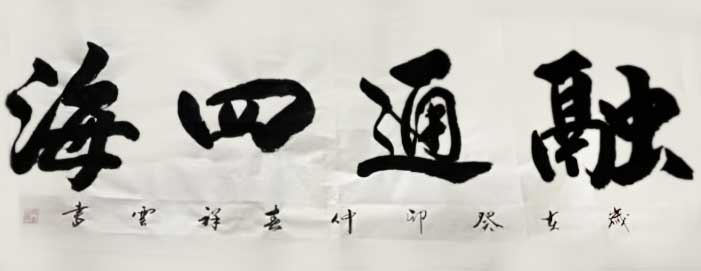 融通四海
歲在癸卯仲春祥雲書